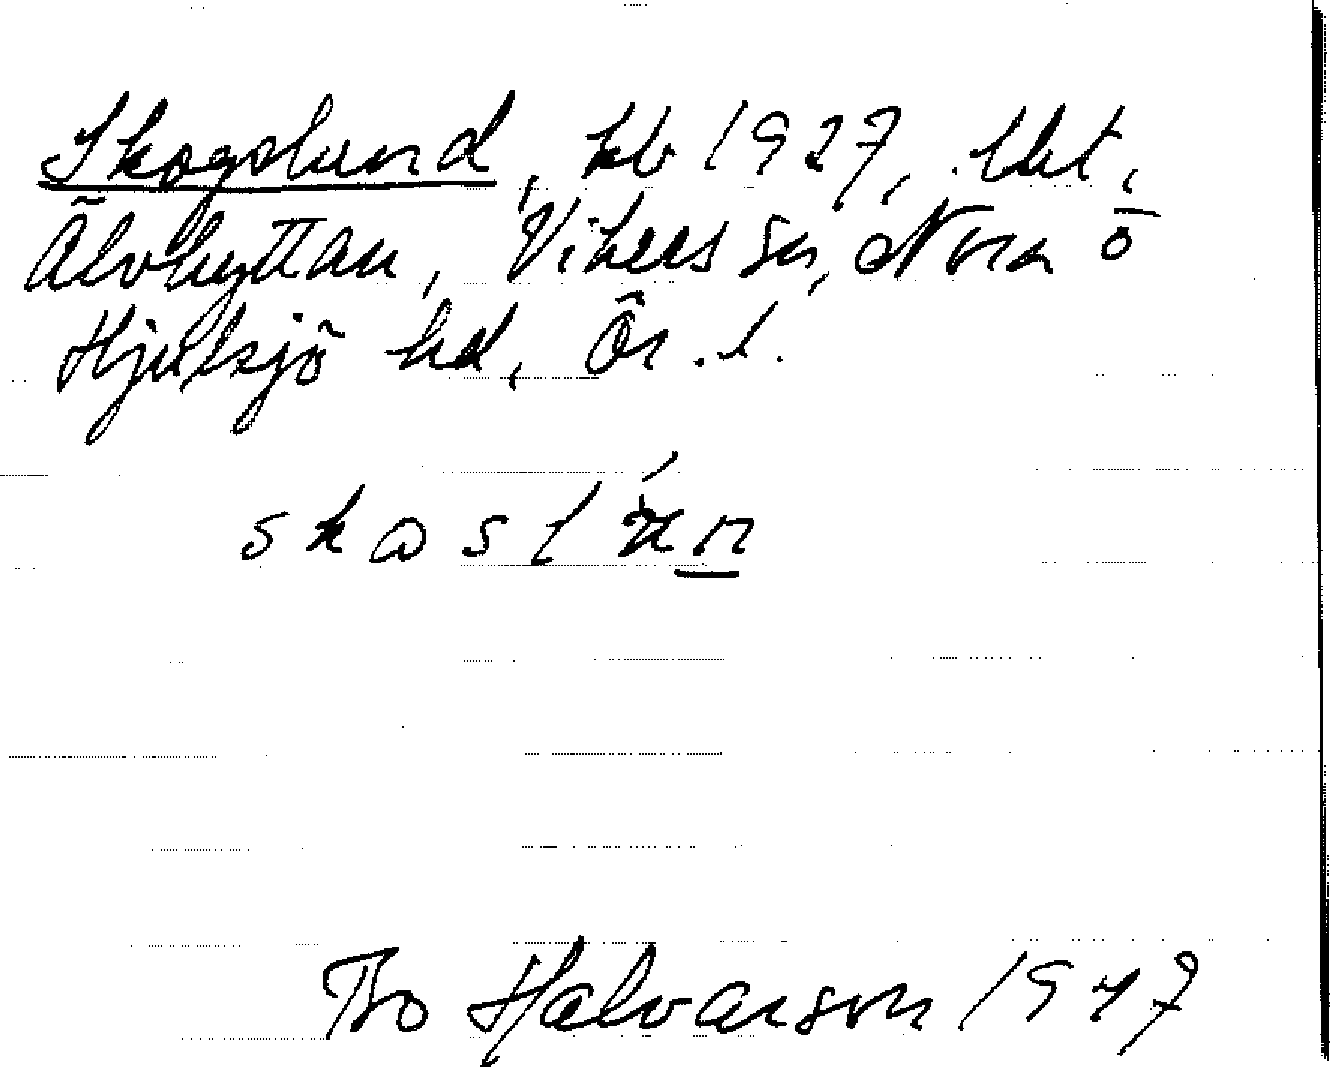 Skogslund, kb 1927, lht,
Älvhyttan, Vikers sn, Nora o
Hjulsjö hd, Ör. l.
Bo Halvarson 1947